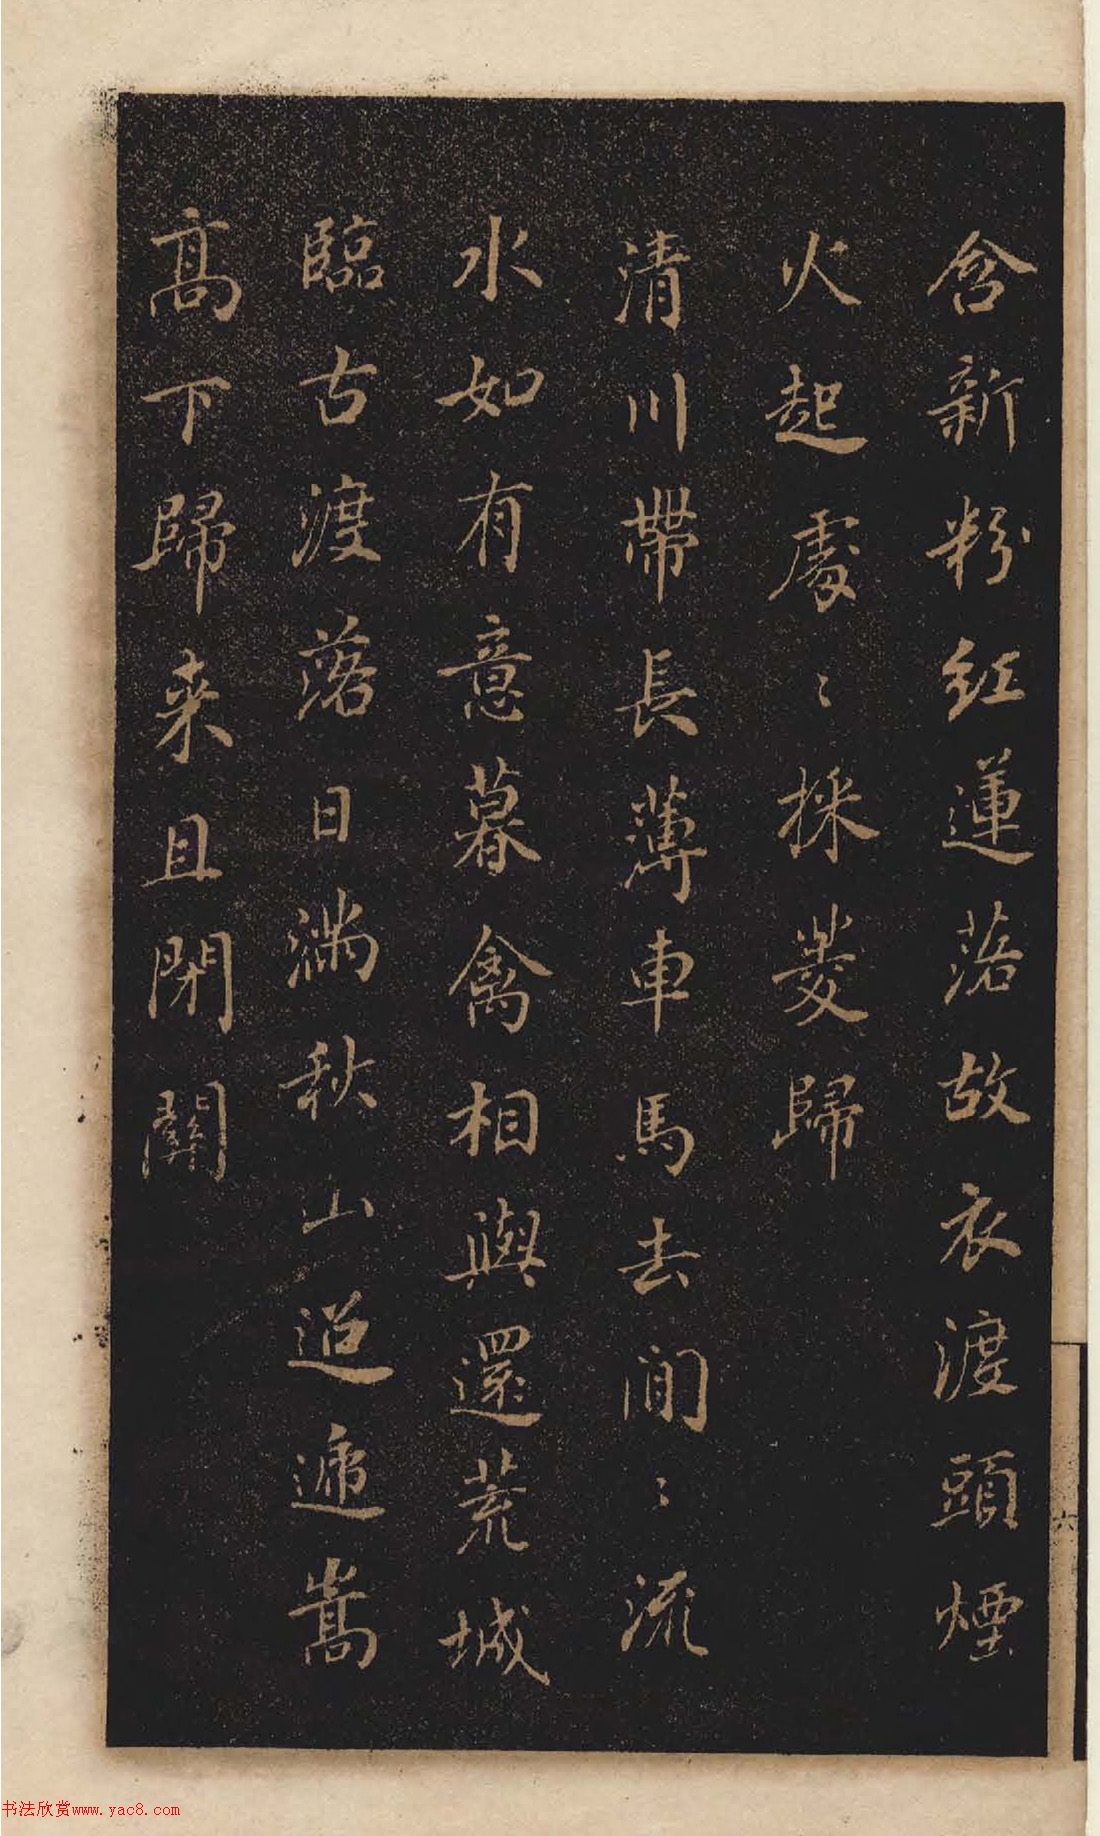 含新粉紅蓮落故衣渡頭煙
火起處〻採菱歸
清川帶長薄車馬去閒〻流
水如有意暮禽相與還荒城
臨古渡落日滿秋山迢遞嵩
高下歸来且閉關
六
书法欣赏www.yac8.com